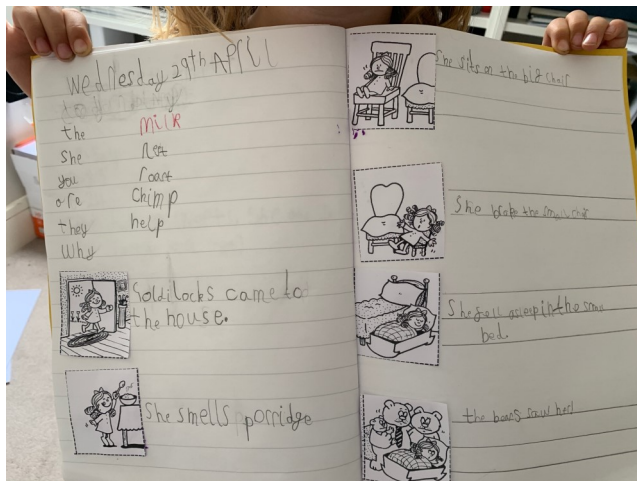 Wednesday 29th APril
the milk
She net
you roast
are chimp
they help
Why
Goldilocks came to
the house.
She smells porridge
She sits on the big chair
She broke the small chair
She fell asleep in the
bed.
the bears saw her